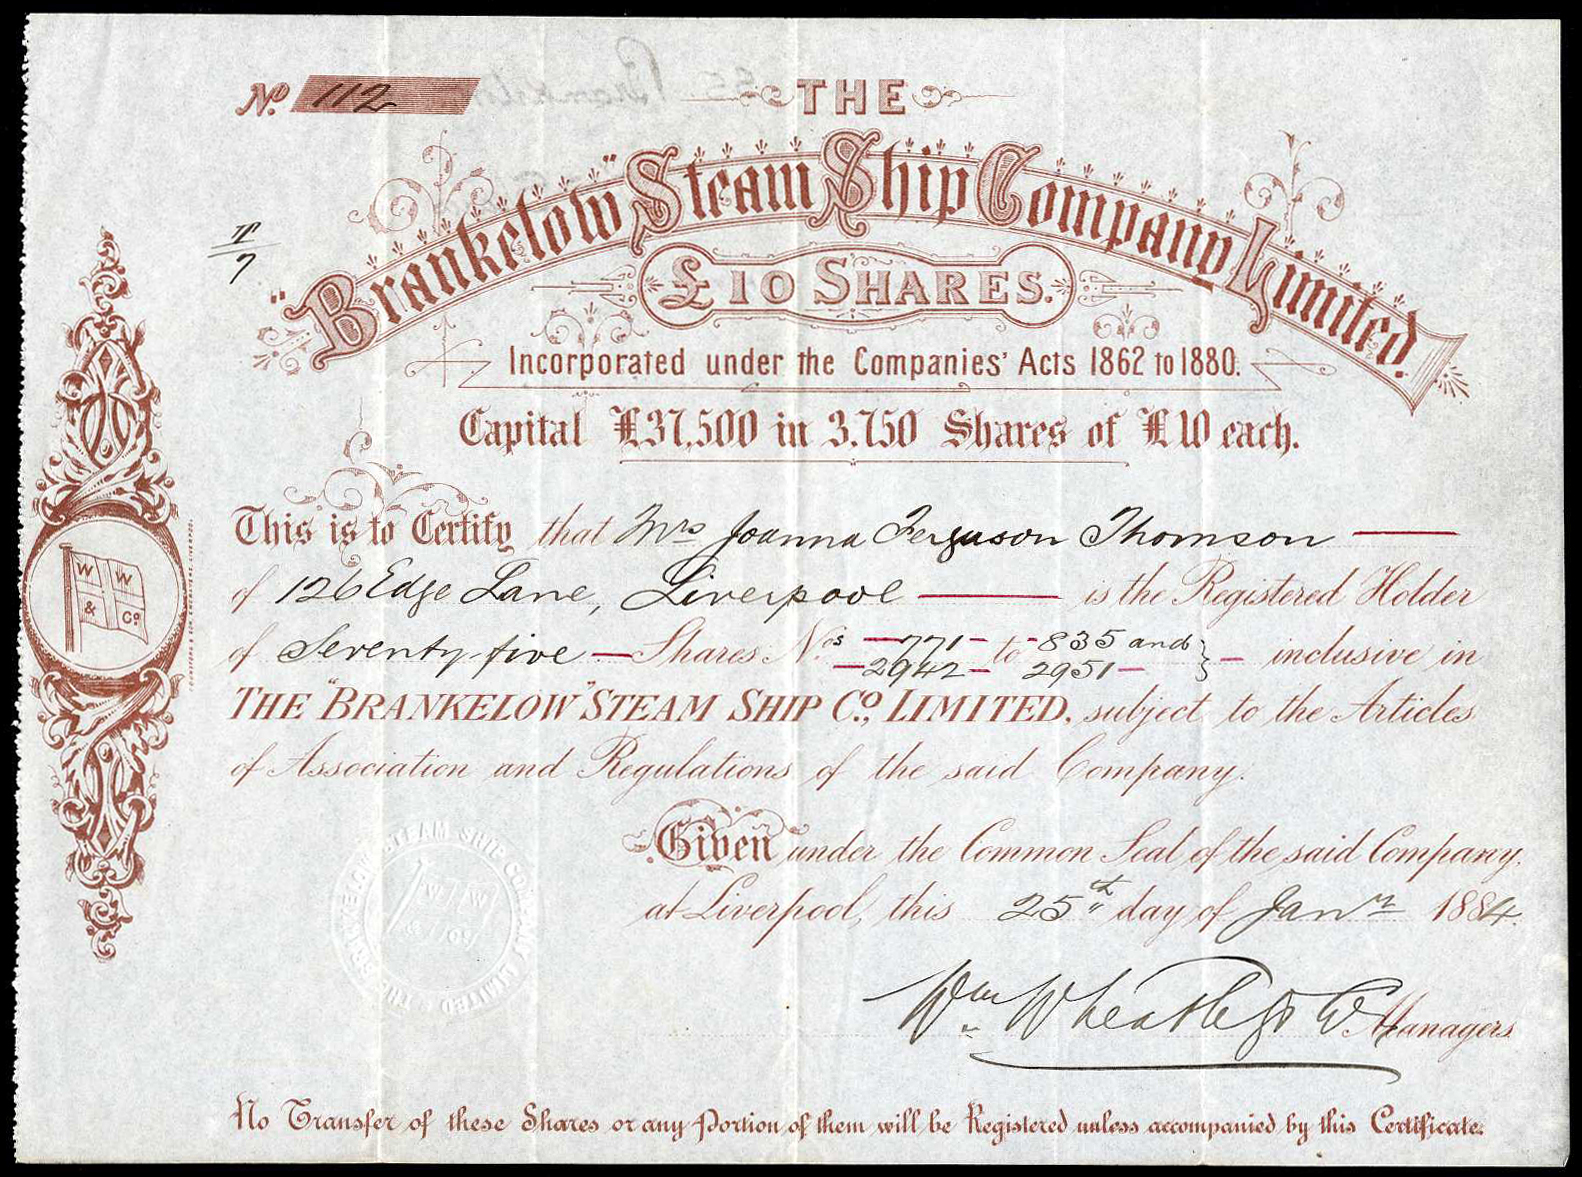 No 112
THE
"Brankelow" Steam Ship Company Limited.
£10 SHARES.
T/7
Incorporated under the Companies' Acts 1862 to 1880.
Capital £37,500 in 3,750 Shares of £10 each.
This is to Certify that Mrs Joanna Ferguson Thomson
of 126 Edge Lane, Liverpool is the Registered Holder
of Seventy-five Shares Nos 771 to 835 and
2942 2951 inclusive in
THE "BRANKELOW" STEAM SHIP Co., LIMITED, subject to the Articles
of Association and Regulations of the said Company.
Given under the Common Seal of the said Company,
at Liverpool, this 25th day of Jany 1884.
Wm Wheatley & Co Managers
No Transfer of these Shares or any Portion of them will be Registered unless accompanied by this Certificate.
W W
& Co
THE BRANKELOW STEAM SHIP COMPANY LIMITED